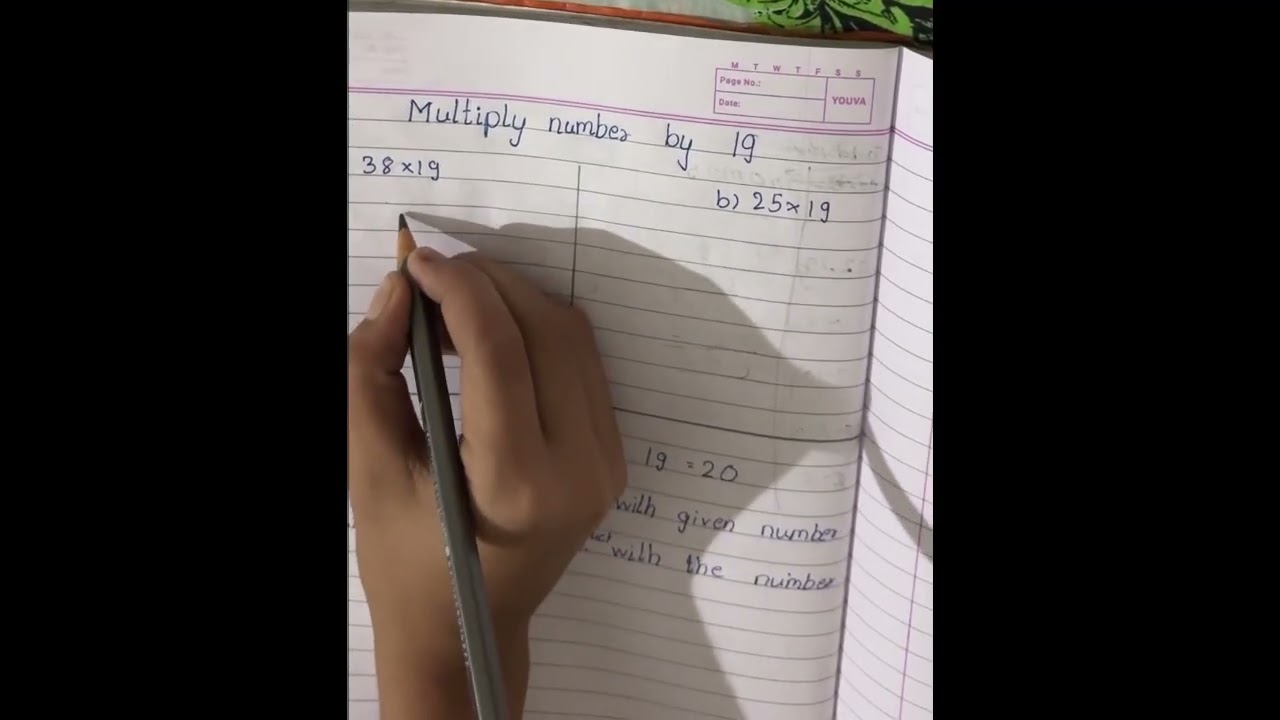 M T W T F S S
Page No.:
Date:
YOUVA
Multiply number by 19
38×19
b) 25×19
19 = 20
with given number
with the number